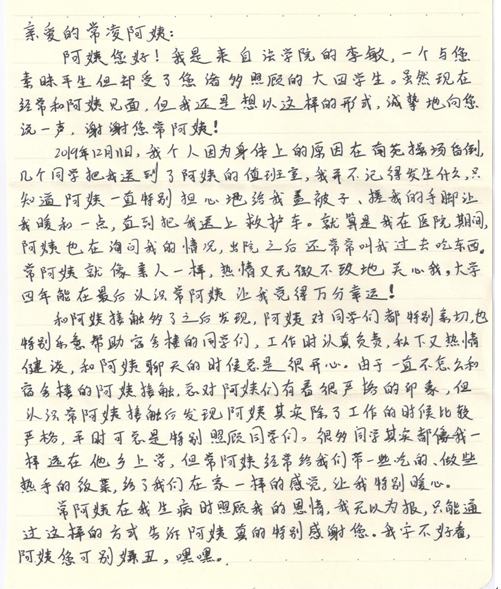 亲爱的常凌阿姨:
阿姨您好!我是来自法学院的李敏,一个与您
素昧平生但却受了您诸多照顾的大四学生。虽然现在
经常和阿姨见面,但我还是想以这样的形式,诚挚地向您
说一声,谢谢您常阿姨!
2019年12月11日,我个人因为身体上的原因在南苑操场昏倒,
几个同学把我送到了阿姨的值班室,我并不记得发生什么,只
知道阿姨一直特别担心地给我盖被子、搓我的手脚让
我暖和一点,直到把我送上救护车。就算是我在医院期间,
阿姨也在询问我的情况,出院之后还常常叫我过去吃东西。
常阿姨就像亲人一样,热情又无微不致地关心我。大学
四年能在最后认识常阿姨让我觉得万分幸运!
和阿姨接触多了之后发现,阿姨对同学们都特别亲切,也
特别乐意帮助宿舍楼的同学们,工作时认真负责,私下又热情
健谈,和阿姨聊天的时候总是很开心。由于一直不怎么和
宿舍楼的阿姨接触,总对阿姨们有着很严格的印象,但
认识常阿姨接触后发现阿姨其实除了工作的时候比较
严格,平时可总是特别照顾同学们。很多同学其实都像我一
样远在他乡上学,但常阿姨经常给我们带一些吃的、做些
热乎的饭菜,给了我们在家一样的感觉,让我特别暖心。
常阿姨在我生病时照顾我的恩情,我无以为报,只能通
过这样的方式告诉阿姨真的特别感谢您。我字不好看,
阿姨您可别嫌丑,嘿嘿。